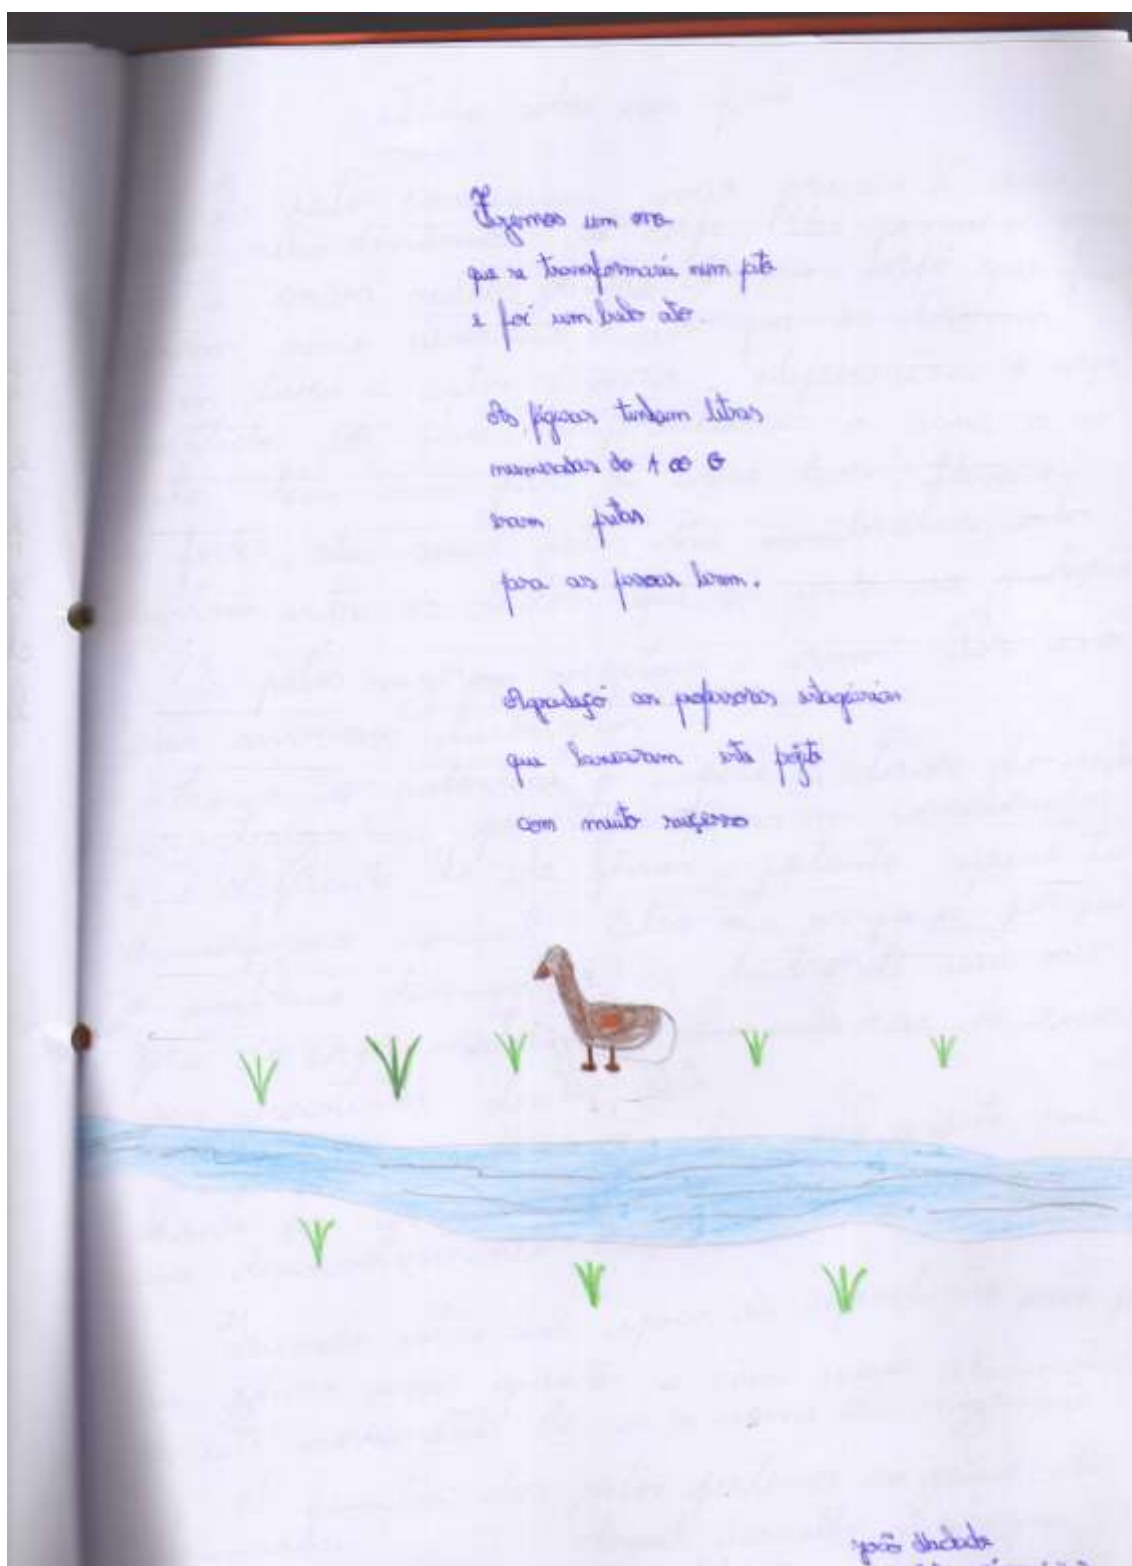 Fizemos um ovo
que se transformaria num pato
e foi um belo ato.
As figuras tinham letras
numeradas do A ao G
eram feitas
para as pessoas lerem.
Agradeço as professoras estagiárias
que lançaram este projeto
com muito sucesso
João